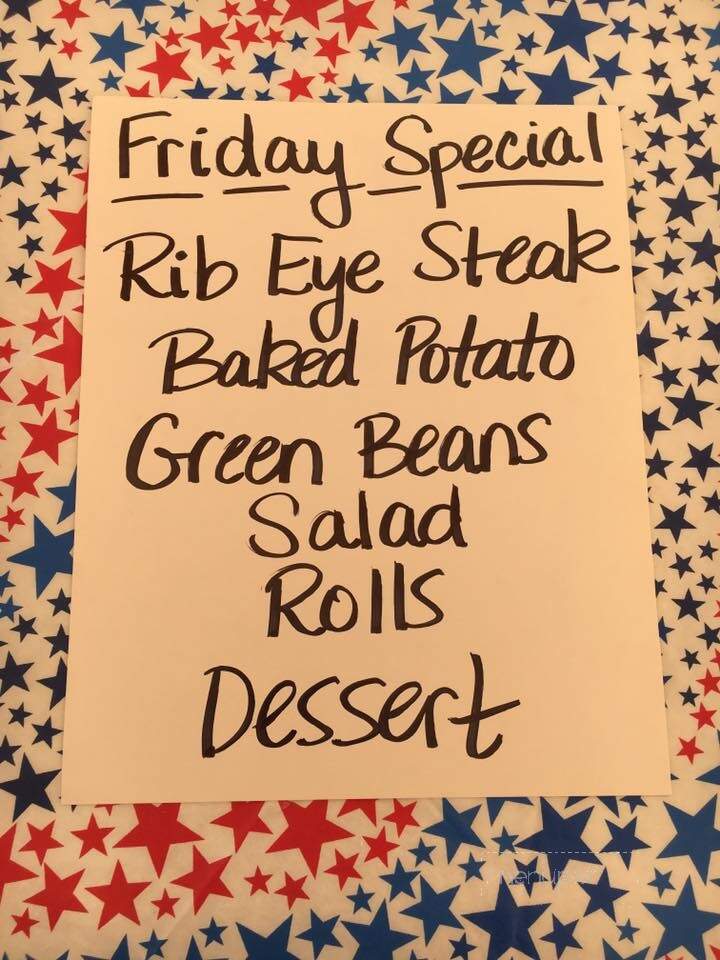 Friday Special
Rib Eye Steak
Baked Potato
Green Beans
Salad
Rolls
Dessert